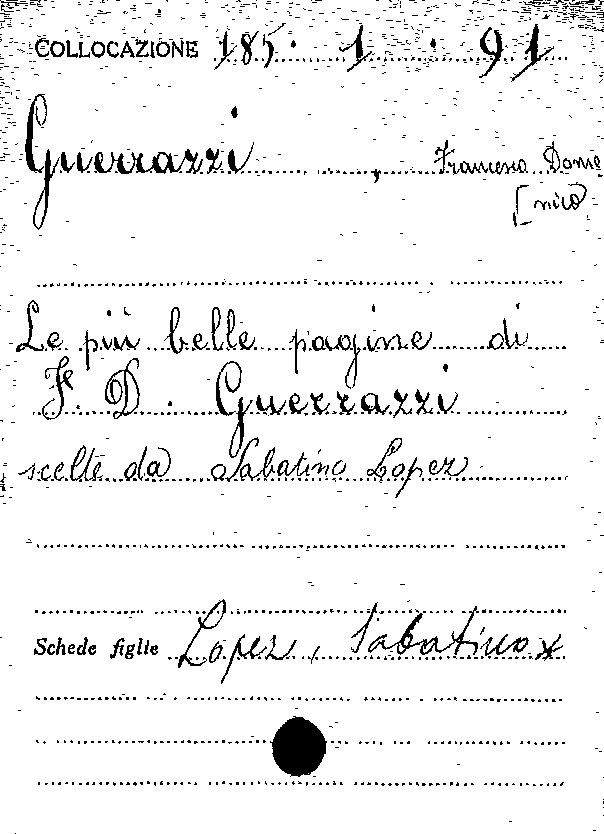 COLLOCAZIONE 185. 1. 91
Guerrazzi , Francesco Dome
[nico
Le più belle pagine di
F. D. Guerrazzi
scelte da Sabatino Lopez
Schede figlie Lopez, Sabatino x